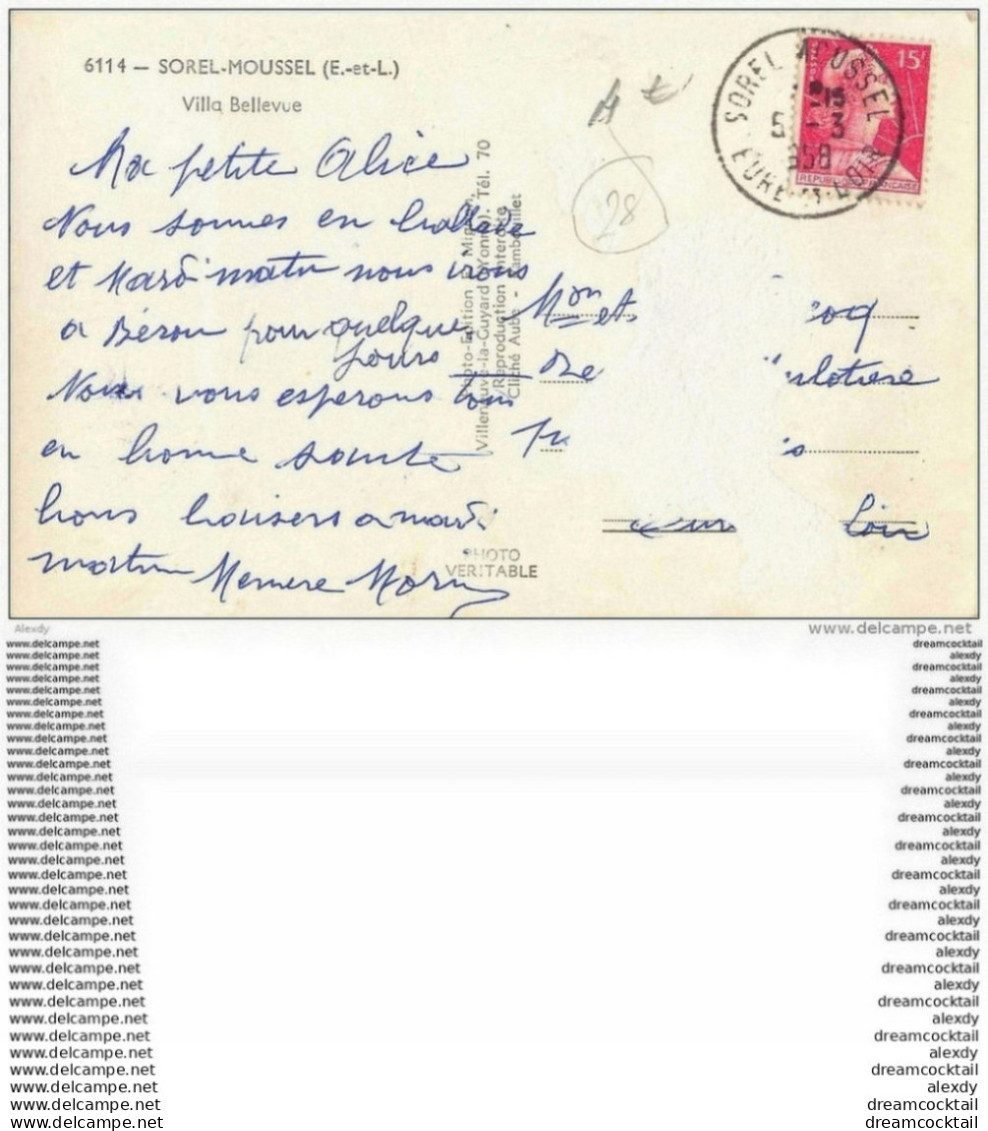 6114 — SOREL-MOUSSEL (E.-et-L.)
Villa Bellevue
Ma petite Alice
Nous sommes en ballade
et Mardi matin nous irons
a Bérou pour quelque
Jours
Nous vous esperons tous
en bonne santé
bons baisers a mardi
matin Memere Morin
Photo-Edition
Villeneuve-la-Guyard (Yonne). Tél. 70
Reproduction interdite
Cliché Aube - Rambouillet
PHOTO
VERITABLE
28
SOREL MOUSSEL
15
5 - 3
958
EURE-ET-LOIR
15F
REPUBLIQUE FRANCAISE
Mon et
oq
De
Eure
Loir
Alexdy
www.delcampe.net
www.delcampe.net
www.delcampe.net
www.delcampe.net
www.delcampe.net
www.delcampe.net
www.delcampe.net
www.delcampe.net
www.delcampe.net
www.delcampe.net
www.delcampe.net
www.delcampe.net
www.delcampe.net
www.delcampe.net
www.delcampe.net
www.delcampe.net
www.delcampe.net
www.delcampe.net
www.delcampe.net
www.delcampe.net
www.delcampe.net
www.delcampe.net
www.delcampe.net
www.delcampe.net
www.delcampe.net
www.delcampe.net
www.delcampe.net
www.delcampe.net
www.delcampe.net
www.delcampe.net
www.delcampe.net
www.delcampe.net
www.delcampe.net
www.delcampe.net
www.delcampe.net
dreamcocktail
alexdy
dreamcocktail
alexdy
dreamcocktail
alexdy
dreamcocktail
alexdy
dreamcocktail
alexdy
dreamcocktail
alexdy
dreamcocktail
alexdy
dreamcocktail
alexdy
dreamcocktail
alexdy
dreamcocktail
alexdy
dreamcocktail
alexdy
dreamcocktail
alexdy
dreamcocktail
alexdy
dreamcocktail
alexdy
dreamcocktail
alexdy
dreamcocktail
alexdy
dreamcocktail
dreamcocktail